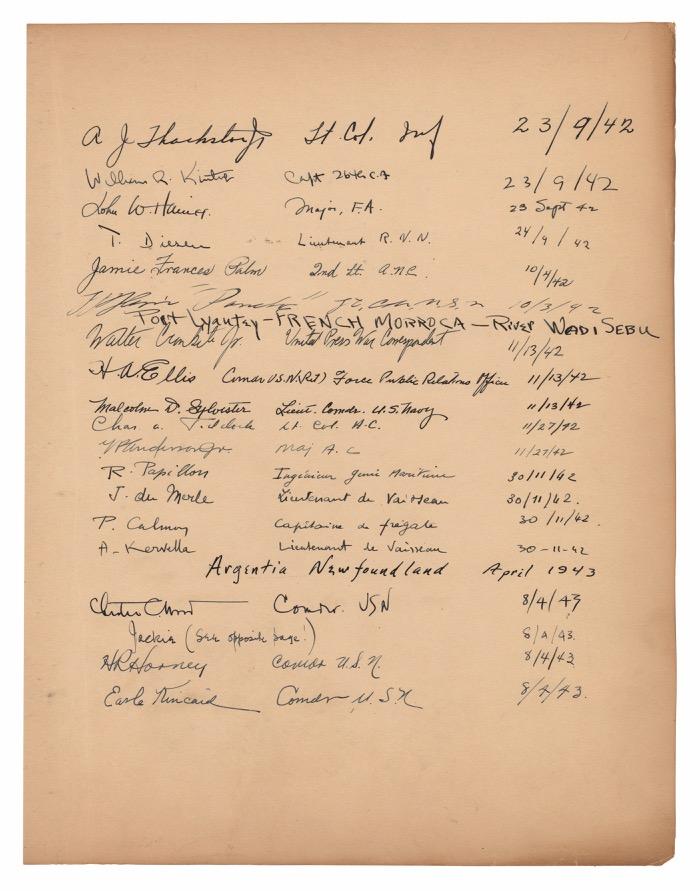 A J Lt. Col. Inf 23/9/42
William R. Kintner Capt 264th C.A 23/9/42
John W. Haines. Major, F.A. 23 Sept 42
T. Dieren Lieutenant R.N.N. 24/9/42
Jamie Frances Palm 2nd Lt. A.N.C. 10/4/42
"Pancho" 10/3/42
Port Lyautey - FRENCH MORROCA - River WADI SEBU
Walter Cronkite Jr. United Press War Correspondent 11/13/42
H. A. Ellis Comdr U.S.N. (Rt) Force Public Relations Officer 11/13/42
Malcolm D. Sylvester Lieut. Comdr. U.S. Navy 11/13/42
Chas A. Lt Col. A.C. 11/27/42
Anderson Jr. Maj A.C 11/27/42
R. Papillon Ingénieur génie maritime 30/11/42
J. du Merle Lieutenant de Vaisseau 30/11/42.
P. Calmon Capitaine de frégate 30/11/42.
A-Kervella Lieutenant de Vaisseau 30-11-42
Argentia Newfoundland April 1943
Comdr. USN 8/4/43
Jackie (See opposite page!) 8/4/43.
HR Horney Comdr U.S.N. 8/4/43
Earle Kincaid Comdr U.S.N 8/4/43.